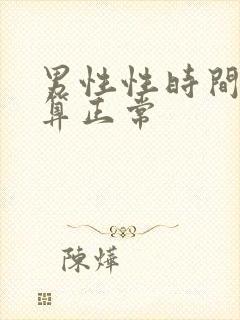 男性性時間
算正常
陳燁